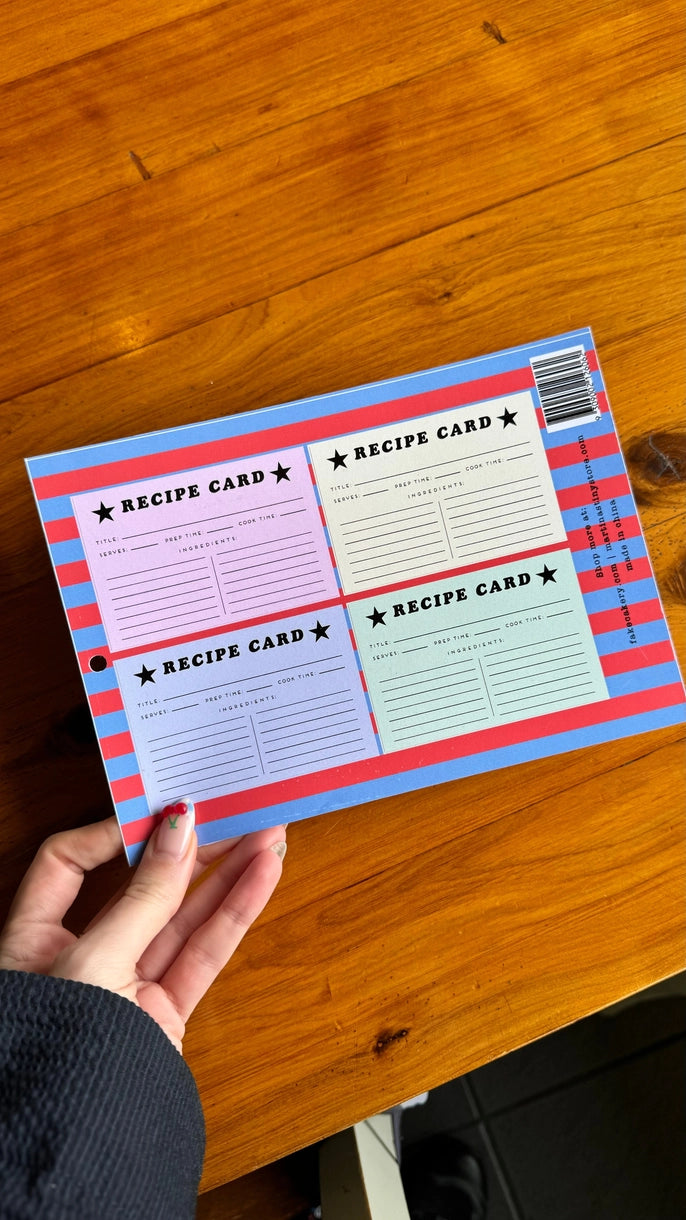 ★ RECIPE CARD ★
TITLE:
SERVES: PREP TIME: COOK TIME:
INGREDIENTS:
★ RECIPE CARD ★
TITLE:
SERVES: PREP TIME: COOK TIME:
INGREDIENTS:
★ RECIPE CARD ★
TITLE:
SERVES: PREP TIME: COOK TIME:
INGREDIENTS:
★ RECIPE CARD ★
TITLE:
SERVES: PREP TIME: COOK TIME:
INGREDIENTS:
Shop more at:
fakecakery.com | martinastinystore.com
made in china